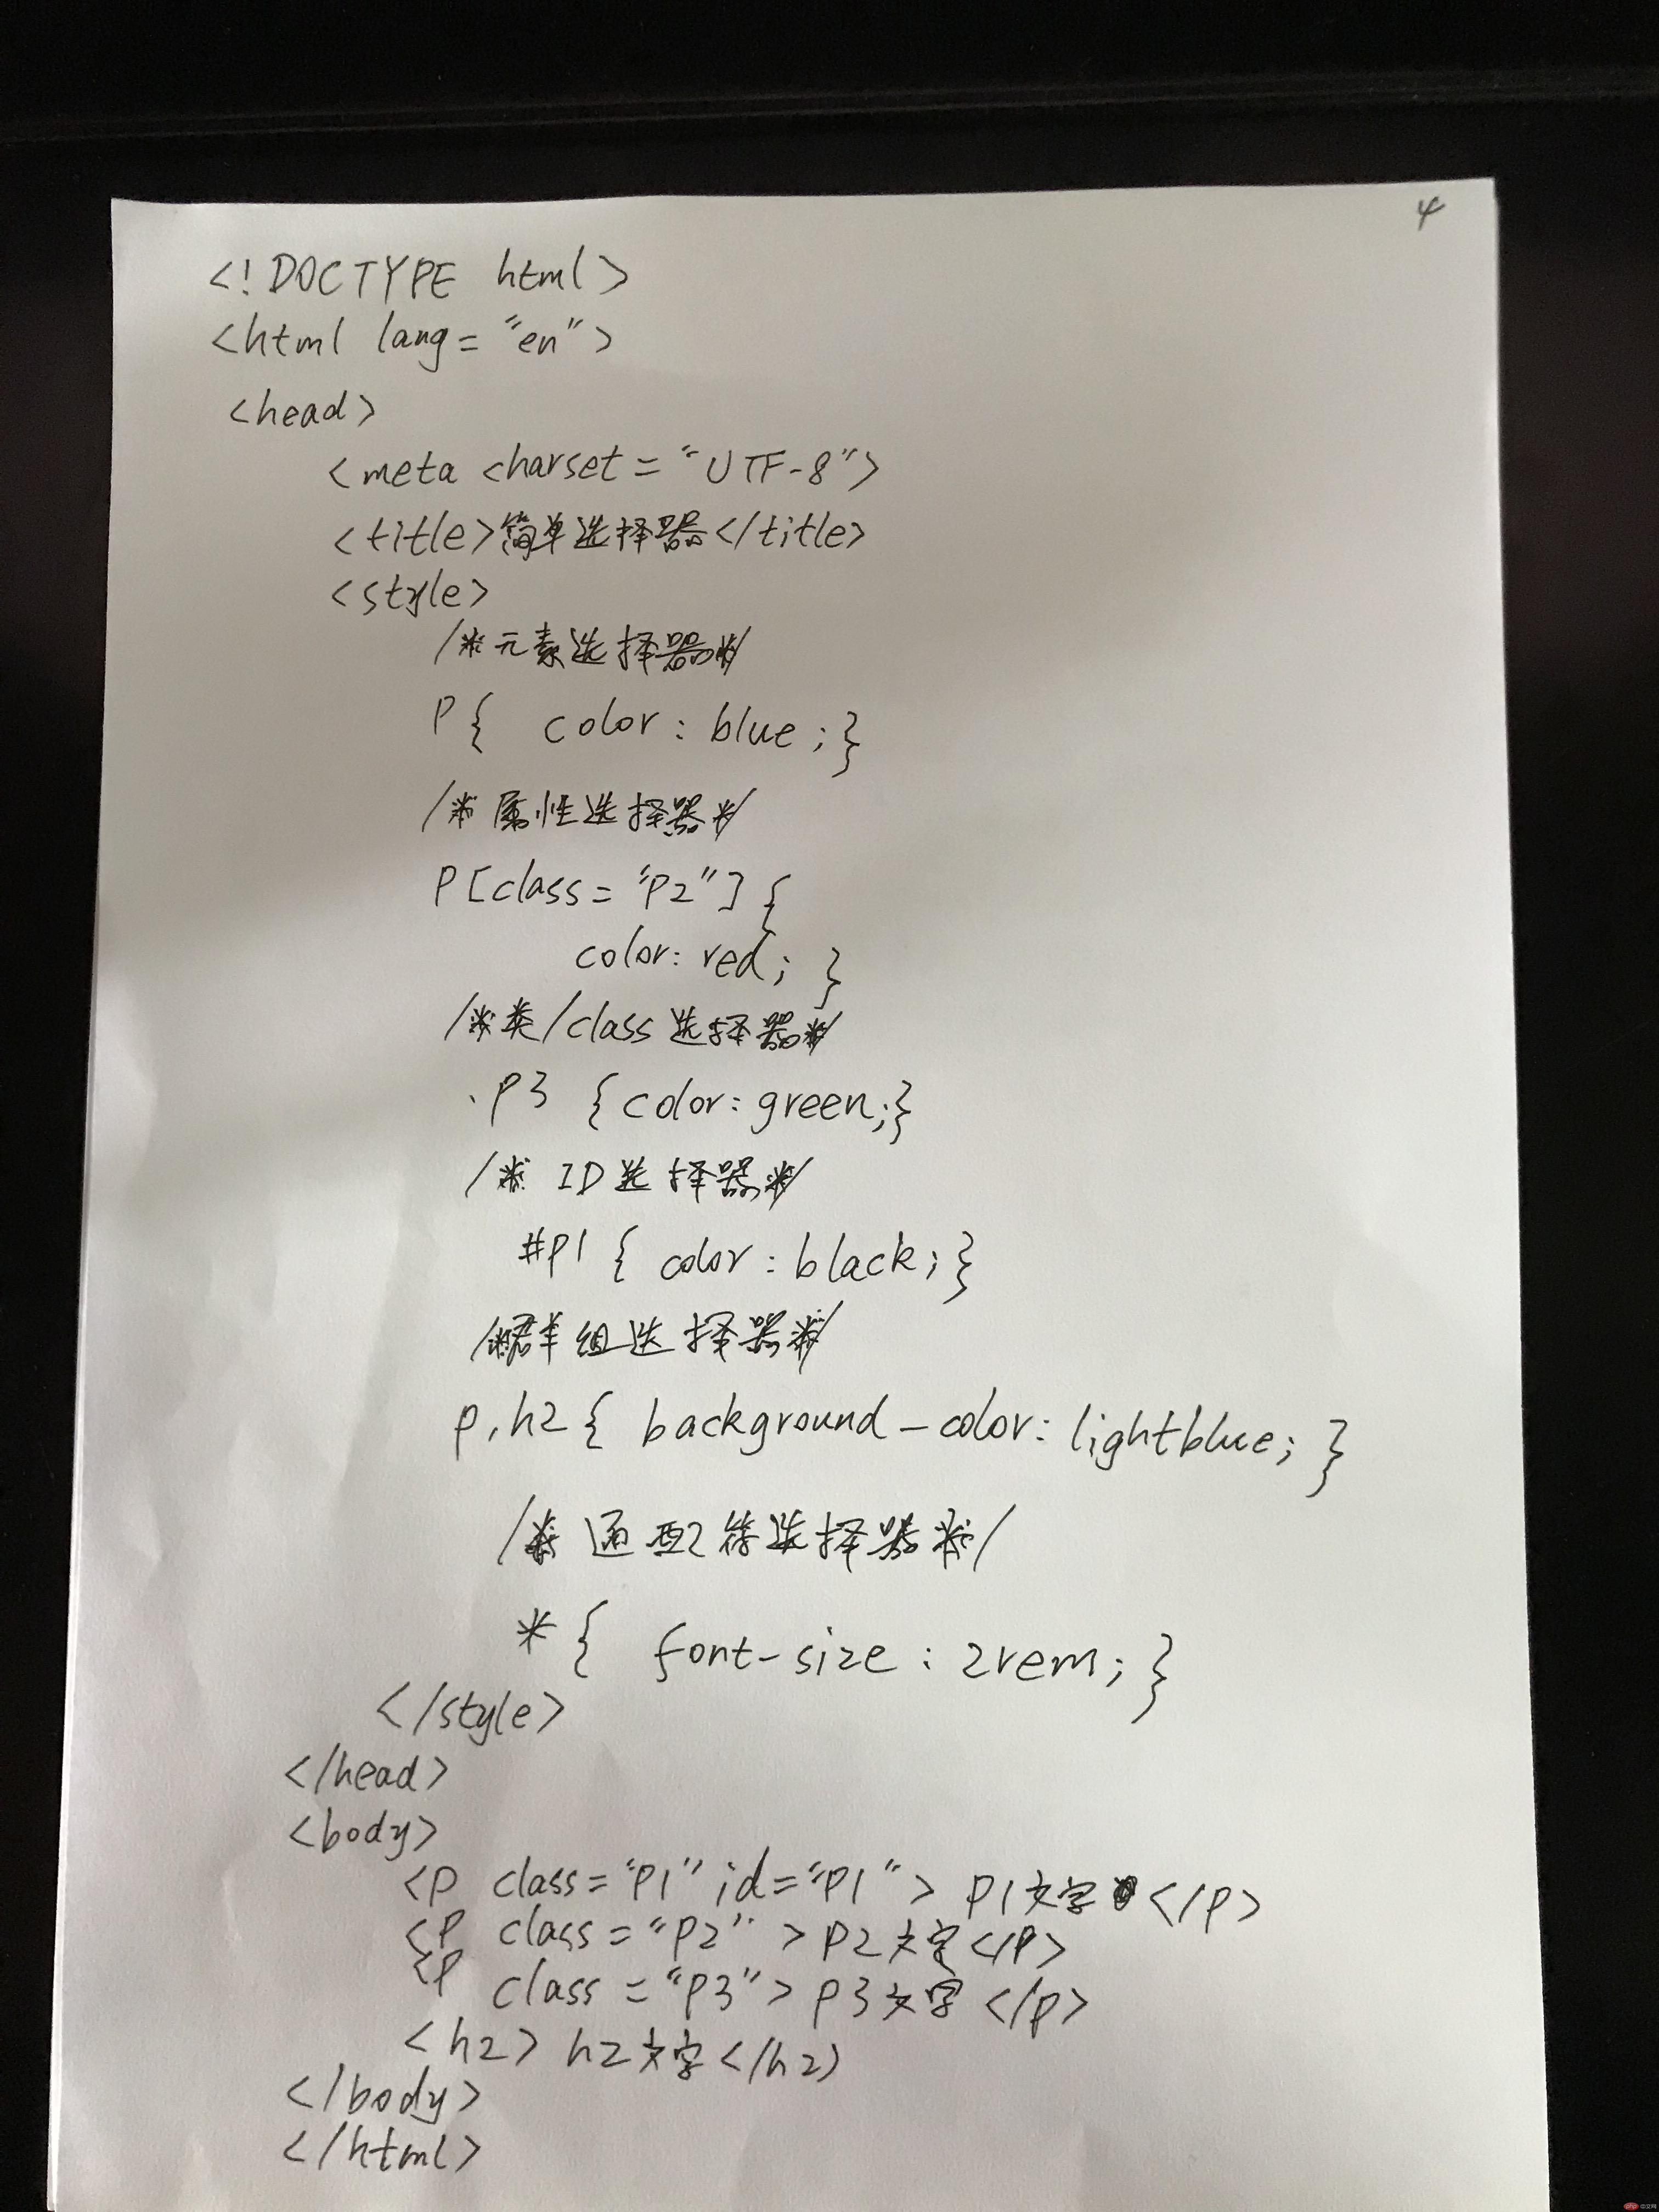 4
<!DOCTYPE html>
<html lang="en">
<head>
<meta charset="UTF-8">
<title>简单选择器</title>
<style>
/*元素选择器*/
p{ color: blue;}
/*属性选择器*/
p[class="p2"]{
color: red; }
/*类/class选择器*/
.p3 {color: green;}
/* ID选择器*/
#p1{ color: black;}
/*群组选择器*/
p,h2{ background-color: lightblue; }
/*通配符选择器*/
*{ font-size: 2rem; }
</style>
</head>
<body>
<p class="p1" id="p1"> p1文字</p>
<p class="p2">p2文字</p>
<p class="p3">p3文字</p>
<h2>h2文字</h2)
</body>
</html>
php 中文网